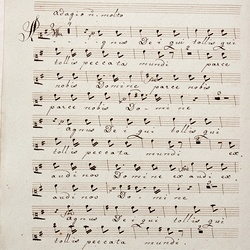 adagio ñ. molto
Agnus De i qui tollis qui
tollis peccata mundi parce
nobis Domine parce nobis
parce nobis Do mi ne
Agnus De i qui tollis qui
tollis peccata mundi. ex
audi nos Domine ex audi ex
audi nos Do mi ne
Agnus De i qui tollis
tollis peccata mundi.